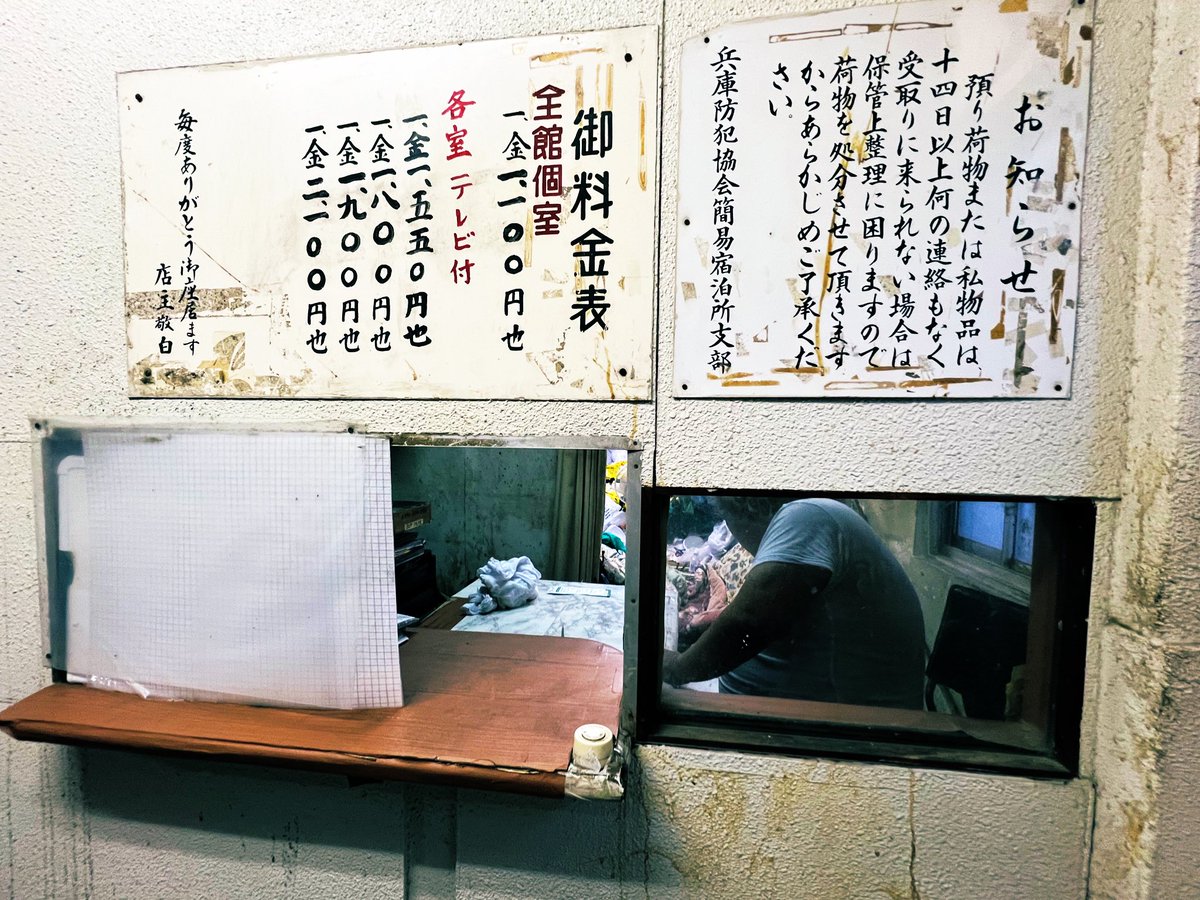 お知らせ
預り荷物または私物品は、
十四日以上何の連絡もなく
受取りに来られない場合は、
保管上整理に困りますので
荷物を処分させて頂きます
からあらかじめご了承くだ
さい。
兵庫防犯協会簡易宿泊所支部
御料金表
全館個室
一、金一、一〇〇円也
各室テレビ付
一、金一、五五〇円也
一、金一、八〇〇円也
一、金一、九〇〇円也
一、金二、一〇〇円也
毎度ありがとう御座居ます
店主敬白